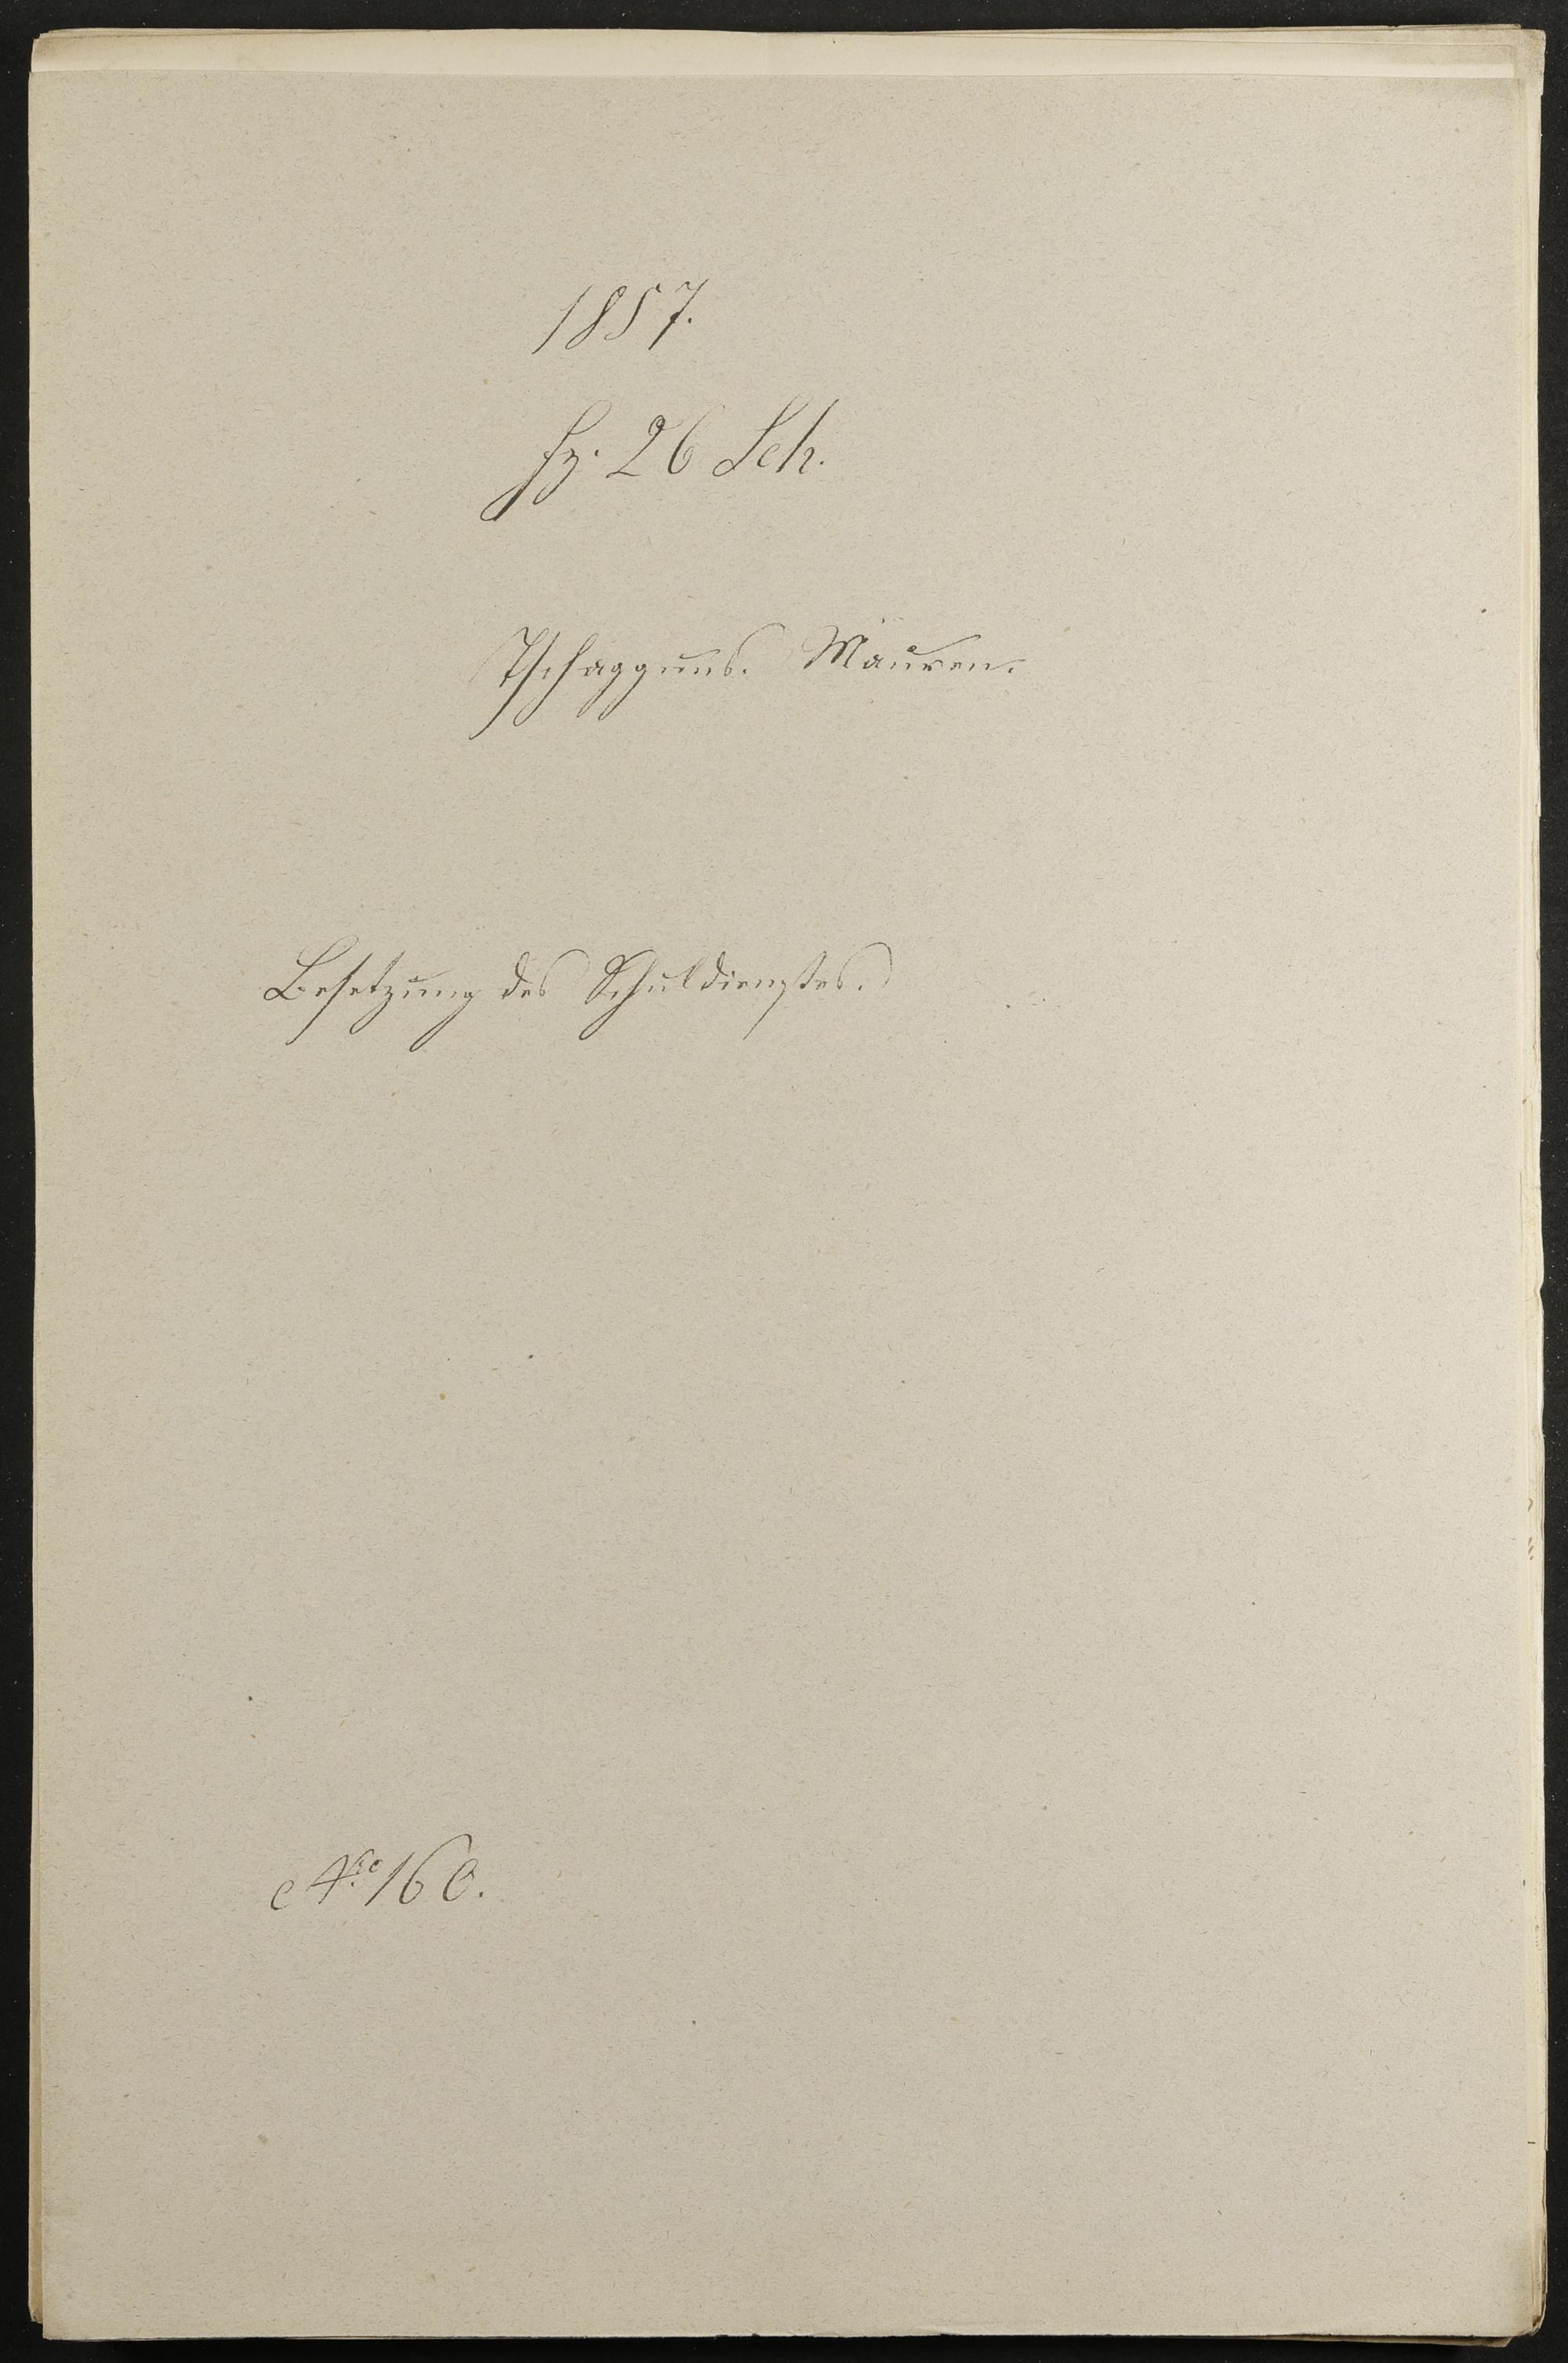 1857.
Fz. 26 Sch.
Tschagguns. Mauren.
Besetzung des Schuldienstes.
Nro 160.